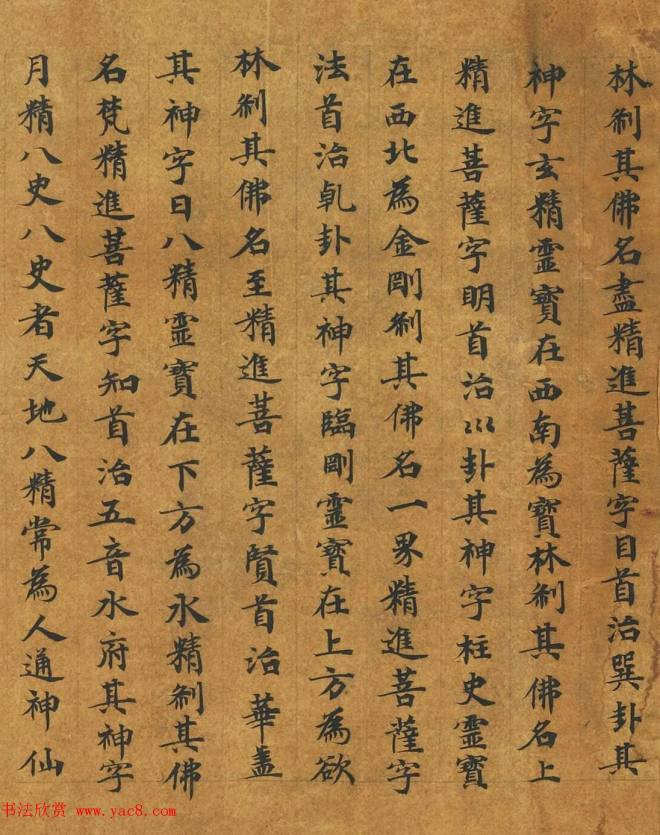 林刹其佛名盡精進菩薩字目首治巽卦其
神字玄精靈寶在西南為寶林刹其佛名上
精進菩薩字明首治巛卦其神字柱史靈寶
在西北為金剛刹其佛名一界精進菩薩字
法首治乹卦其神字臨剛靈寶在上方為欲
林刹其佛名至精進菩薩字賢首治華盖
其神字日八精靈寶在下方為水精刹其佛
名梵精進菩薩字知首治五音水府其神字
月精八史八史者天地八精常為人通神仙
书法欣赏 www.yac8.com